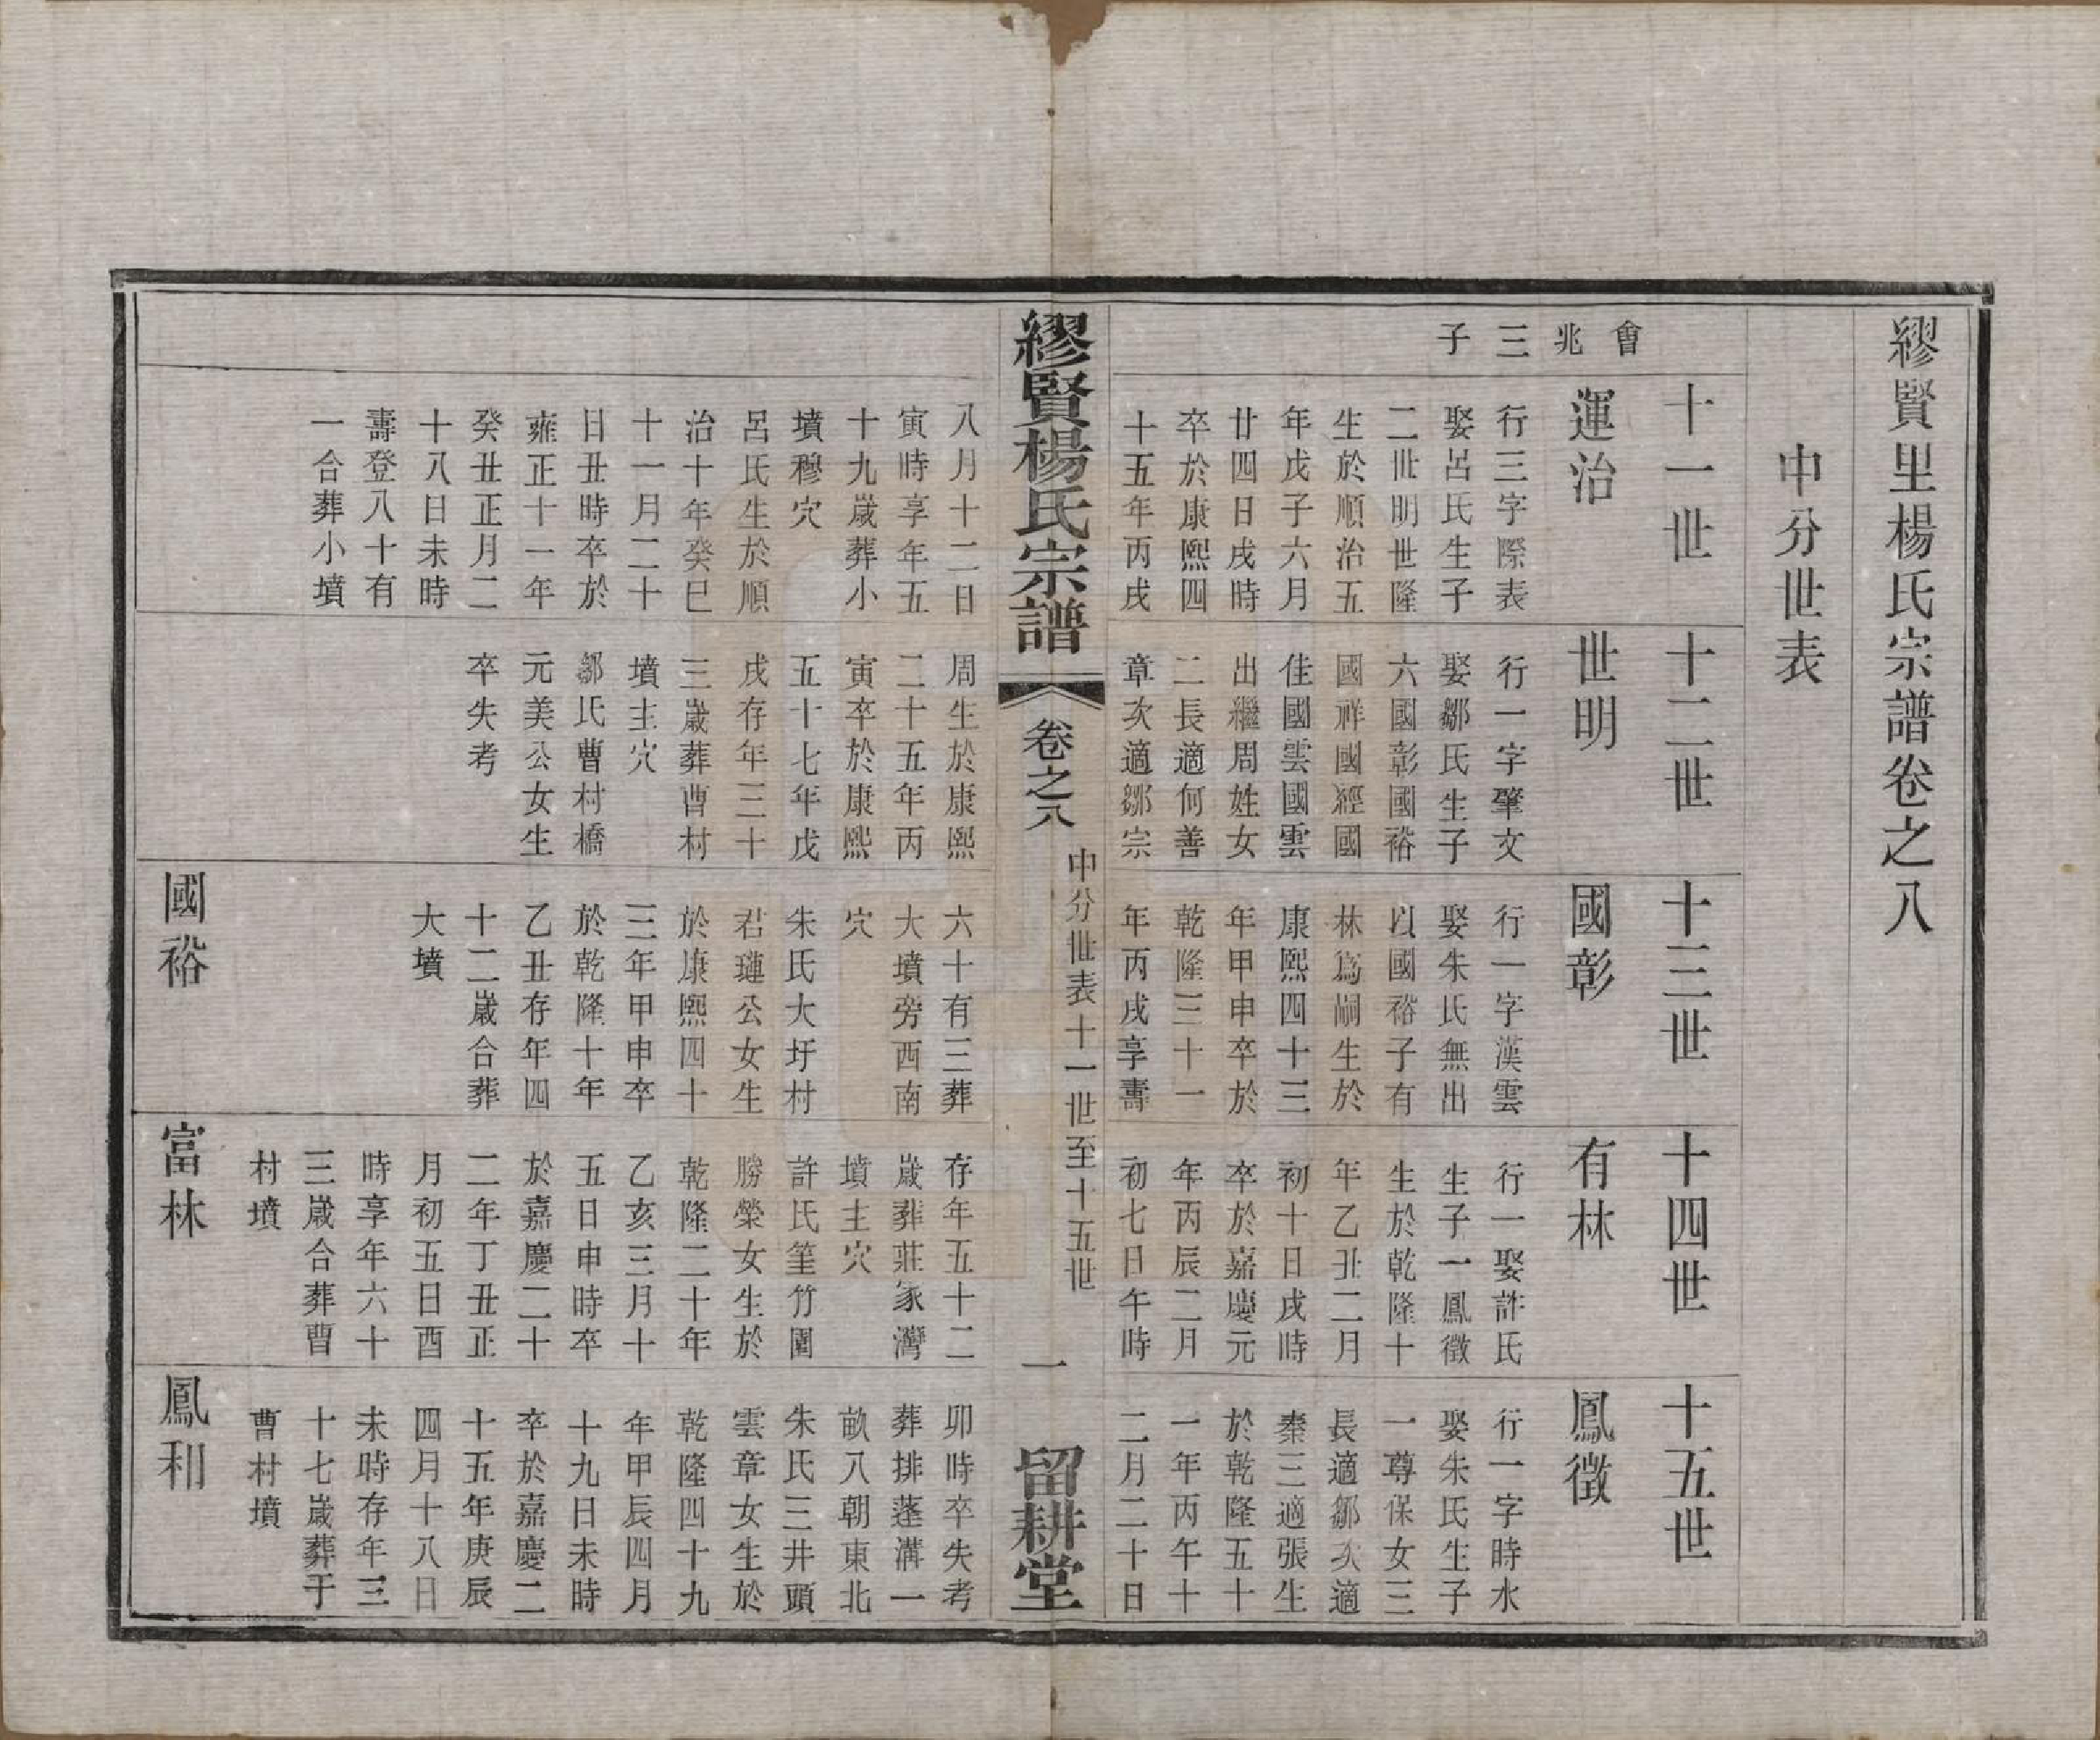 繆賢里楊氏宗譜卷之八
中分世表
十一世
十二世
十三世
十四世
十五世
會兆三子
運治
行三字際表
娶呂氏生子
二世明世隆
生於順治五
年戊子六月
廿四日戌時
卒於康熙四
十五年丙戌
世明
行一字肇文
娶鄒氏生子
六國彰國裕
國祥國經國
佳國雲國雲
出繼周姓女
二長適何善
章次適鄒宗
國彰
行一字漢雲
娶朱氏無出
以國裕子有
林爲嗣生於
康熙四十三
年甲申卒於
乾隆三十一
年丙戌享壽
有林
行一娶許氏
生子一鳳徵
生於乾隆十
年乙丑二月
初十日戌時
卒於嘉慶元
年丙辰二月
初七日午時
鳳徵
行一字時水
娶朱氏生子
一尊保女三
長適鄒次適
秦三適張生
於乾隆五十
一年丙午十
二月二十日
繆賢楊氏宗譜
卷之八
中分世表十一世至十五世
一
留耕堂
八月十二日
寅時享年五
十九歲葬小
墳穆穴
呂氏生於順
治十年癸巳
十一月二十
日丑時卒於
雍正十一年
癸丑正月二
十八日未時
壽登八十有
一合葬小墳
周生於康熙
二十五年丙
寅卒於康熙
五十七年戊
戌存年三十
三歲葬曹村
墳主穴
鄒氏曹村橋
元美公女生
卒失考
六十有三葬
大墳旁西南
穴
朱氏大圩村
君璉公女生
於康熙四十
三年甲申卒
於乾隆十年
乙丑存年四
十二歲合葬
大墳
存年五十二
歲葬莊家灣
墳主穴
許氏篁竹園
勝榮女生於
乾隆二十年
乙亥三月十
五日申時卒
於嘉慶二十
二年丁丑正
月初五日酉
時享年六十
三歲合葬曹
村墳
卯時卒失考
葬排蓬溝一
畝八朝東北
朱氏三井頭
雲章女生於
乾隆四十九
年甲辰四月
十九日未時
卒於嘉慶二
十五年庚辰
四月十八日
未時存年三
十七歲葬于
曹村墳
國裕
富林
鳳和